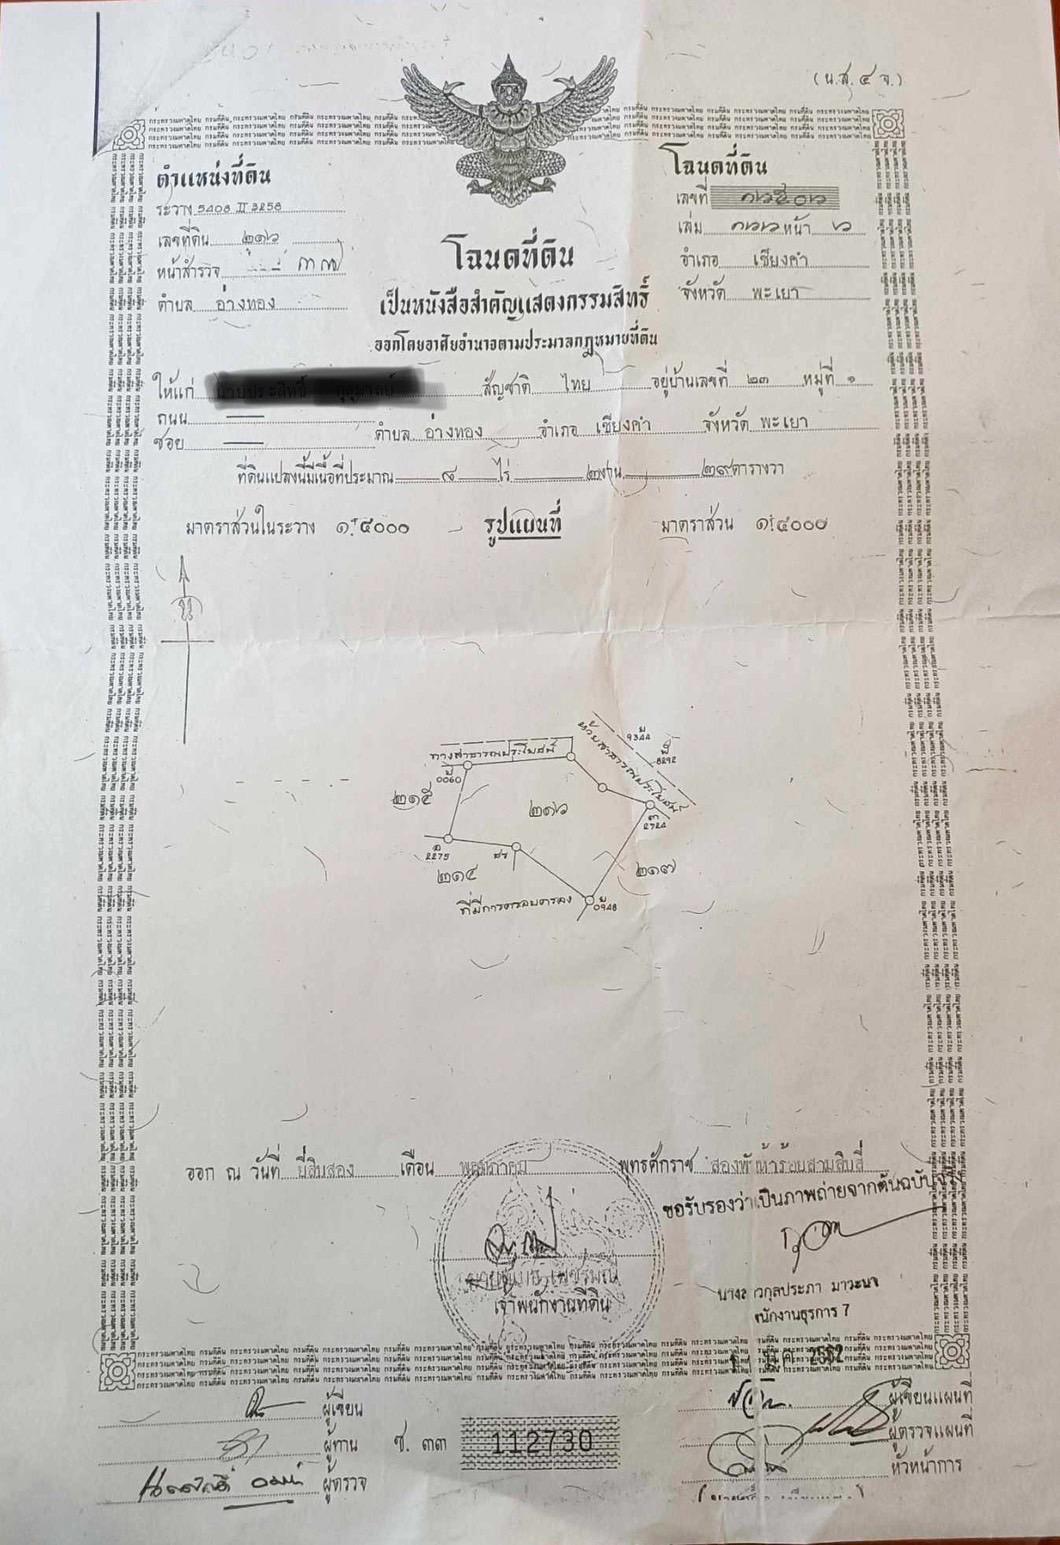 (น.ส. ๔ จ.)
ตำแหน่งที่ดิน
ระวาง 5408 II 3258
เลขที่ดิน ๒๑๖
หน้าสำรวจ
ตำบล อ่างทอง
โฉนดที่ดิน
เลขที่
เล่ม หน้า
อำเภอ เชียงคำ
จังหวัด พะเยา
โฉนดที่ดิน
เป็นหนังสือสำคัญแสดงกรรมสิทธิ์
ออกโดยอาศัยอำนาจตามประมวลกฎหมายที่ดิน
ให้แก่ สัญชาติ ไทย อยู่บ้านเลขที่ ๒๓ หมู่ที่ ๑
ถนน
ซอย ตำบล อ่างทอง อำเภอ เชียงคำ จังหวัด พะเยา
ที่ดินแปลงนี้มีเนื้อที่ประมาณ ๘ ไร่ ๒ งาน ๒๙ ตารางวา
มาตราส่วนในระวาง ๑:๔๐๐๐ รูปแผนที่ มาตราส่วน ๑:๔๐๐๐
ทางสาธารณประโยชน์
ห้วยสาธารณประโยชน์
9344
8292
0060
๒๑๕
๒๑๖
2724
2275
๒๑๔
๒๑๗
ที่มีการครอบครอง
0948
ออก ณ วันที่ ยี่สิบสอง เดือน พฤษภาคม พุทธศักราช สองพันห้าร้อยสามสิบสี่
ขอรับรองว่าเป็นภาพถ่ายจากต้นฉบับจริง
เจ้าพนักงานที่ดิน
กุลประภา มาวะนา
นักงานธุรการ 7
2552
ผู้เขียน
ผู้ทาน
ผู้ตรวจ
ช. ๓๓ 112730
ผู้เขียนแผนที่
ผู้ตรวจแผนที่
หัวหน้าการ
กระทรวงมหาดไทย กรมที่ดิน